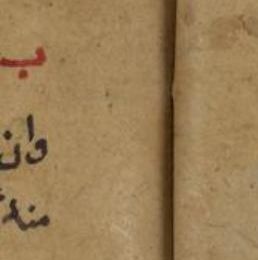 ب
وان
منه